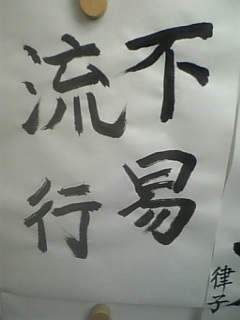 不易
流行
律子